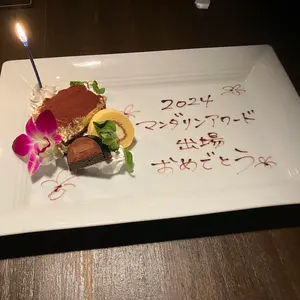 2024
マンダリンアワード
出場
おめでとう